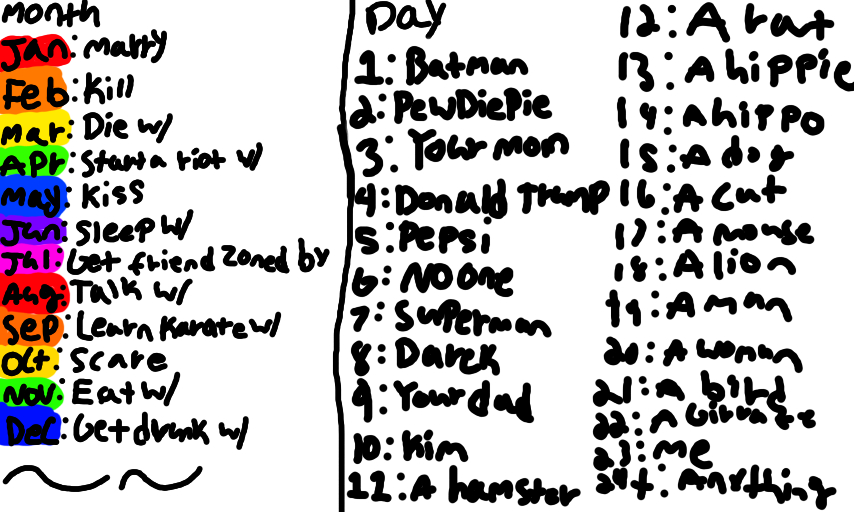 Month
Jan: marry
Feb: Kill
Mar: Die w/
Apr: Start a riot w/
May: Kiss
Jun: Sleep w/
Jul: Get friend zoned by
Aug: Talk w/
Sep: Learn Karate w/
Oct: Scare
Nov: Eat w/
Dec: Get drunk w/
Day
1: Batman
2: PewDiePie
3: Your mom
4: Donald Trump
5: Pepsi
6: No one
7: Superman
8: Darek
9: Your dad
10: Kim
11: A hamster
12: A rat
13: A hippie
14: A hippo
15: A dog
16: A cat
17: A mouse
18: A lion
19: A man
20: A woman
21: A bird
22: A Girrafe
23: me
24+: Anything